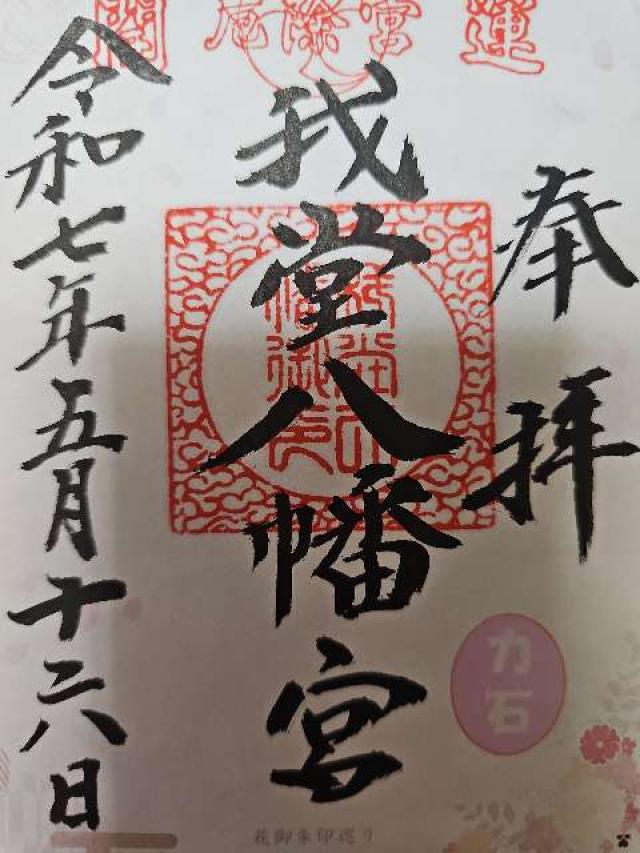 奉拝
我堂八幡宮
令和七年五月十六日
力石
花御朱印巡り